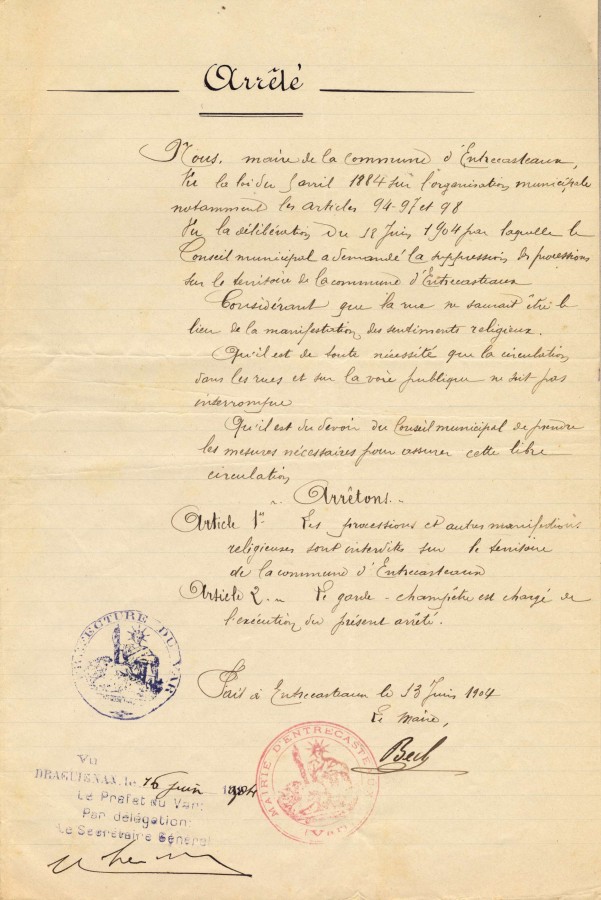 Arrêté
Nous, maire de la commune d'Entrecasteaux,
Vu la loi du 5 avril 1884 sur l'organisation municipale
notamment les articles 94-97 et 98
Vu la délibération du 12 Juin 1904 par laquelle le
Conseil municipal a demandé la suppression des processions
sur le territoire de la commune d'Entrecasteaux
Considérant que la rue ne saurait être le
lieu de la manifestation des sentiments religieux.
Qu'il est de toute nécessité que la circulation
dans les rues et sur la voie publique ne soit pas
interrompue
Qu'il est du devoir du Conseil municipal de prendre
les mesures nécessaires pour assurer cette libre
circulation
Arrêtons.
Article 1er Les processions et autres manifestations
religieuses sont interdites sur le territoire
de la commune d'Entrecasteaux
Article 2.. Le garde-champêtre est chargé de
l'exécution du présent arrêté.
PREFECTURE DU VAR
Fait à Entrecasteaux le 13 Juin 1904
Le Maire,
Bech
MAIRIE D'ENTRECASTEAUX
(Var)
Vu
DRAGUIGNAN, le 16 juin 1904
Le Préfet du Var:
Par délégation:
Le Secrétaire Général